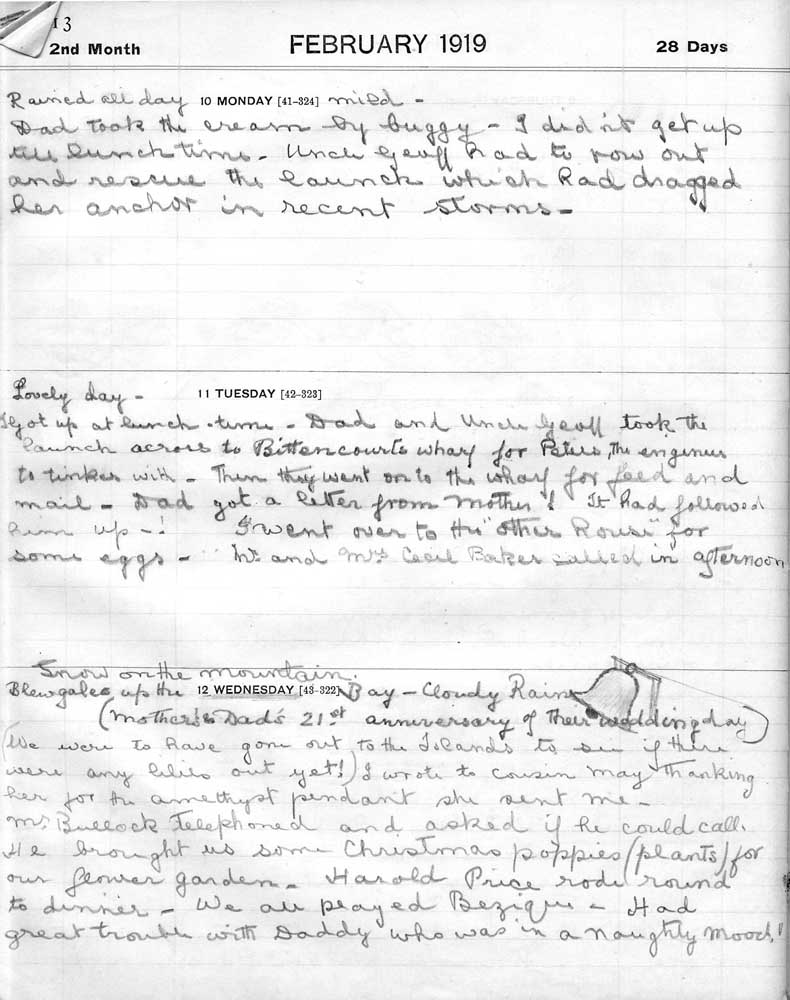 13
2nd Month FEBRUARY 1919 28 Days
Rained all day 10 MONDAY [41-324] mild -
Dad took the cream by buggy - I didn't get up
till lunch time - Uncle Geoff had to row out
and rescue the launch which had dragged
her anchor in recent storms -
Lovely day - 11 TUESDAY [42-323]
I got up at lunch-time - Dad and Uncle Geoff took the
launch across to Bittencourt's wharf for Peters, the engineer
to tinker with - Then they went on to the wharf for feed and
mail - Dad got a letter from Mother! It had followed
him up -! I went over to the "other House" for
some eggs - Mr and Mrs Cecil Baker called in afternoon
Snow on the mountain.
Blew gales up the 12 WEDNESDAY [43-322] Bay - Cloudy Rain
(Mother's & Dad's 21st anniversary of their wedding day)
(We were to have gone out to the Islands to see if there
were any lilies out yet!) I wrote to cousin May thanking
her for the amethyst pendant she sent me -
Mr Bullock telephoned and asked if he could call.
He brought us some Christmas poppies (plants) for
our flower garden - Harold Price rode round
to dinner - We all played Bezique - Had
great trouble with Daddy who was in a naughty mood!